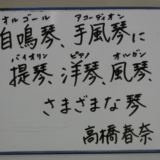 オルゴール アコーディオン
自鳴琴、手風琴に
バイオリン ピアノ オルガン
提琴、洋琴、風琴、
さまざまな琴
高橋春奈